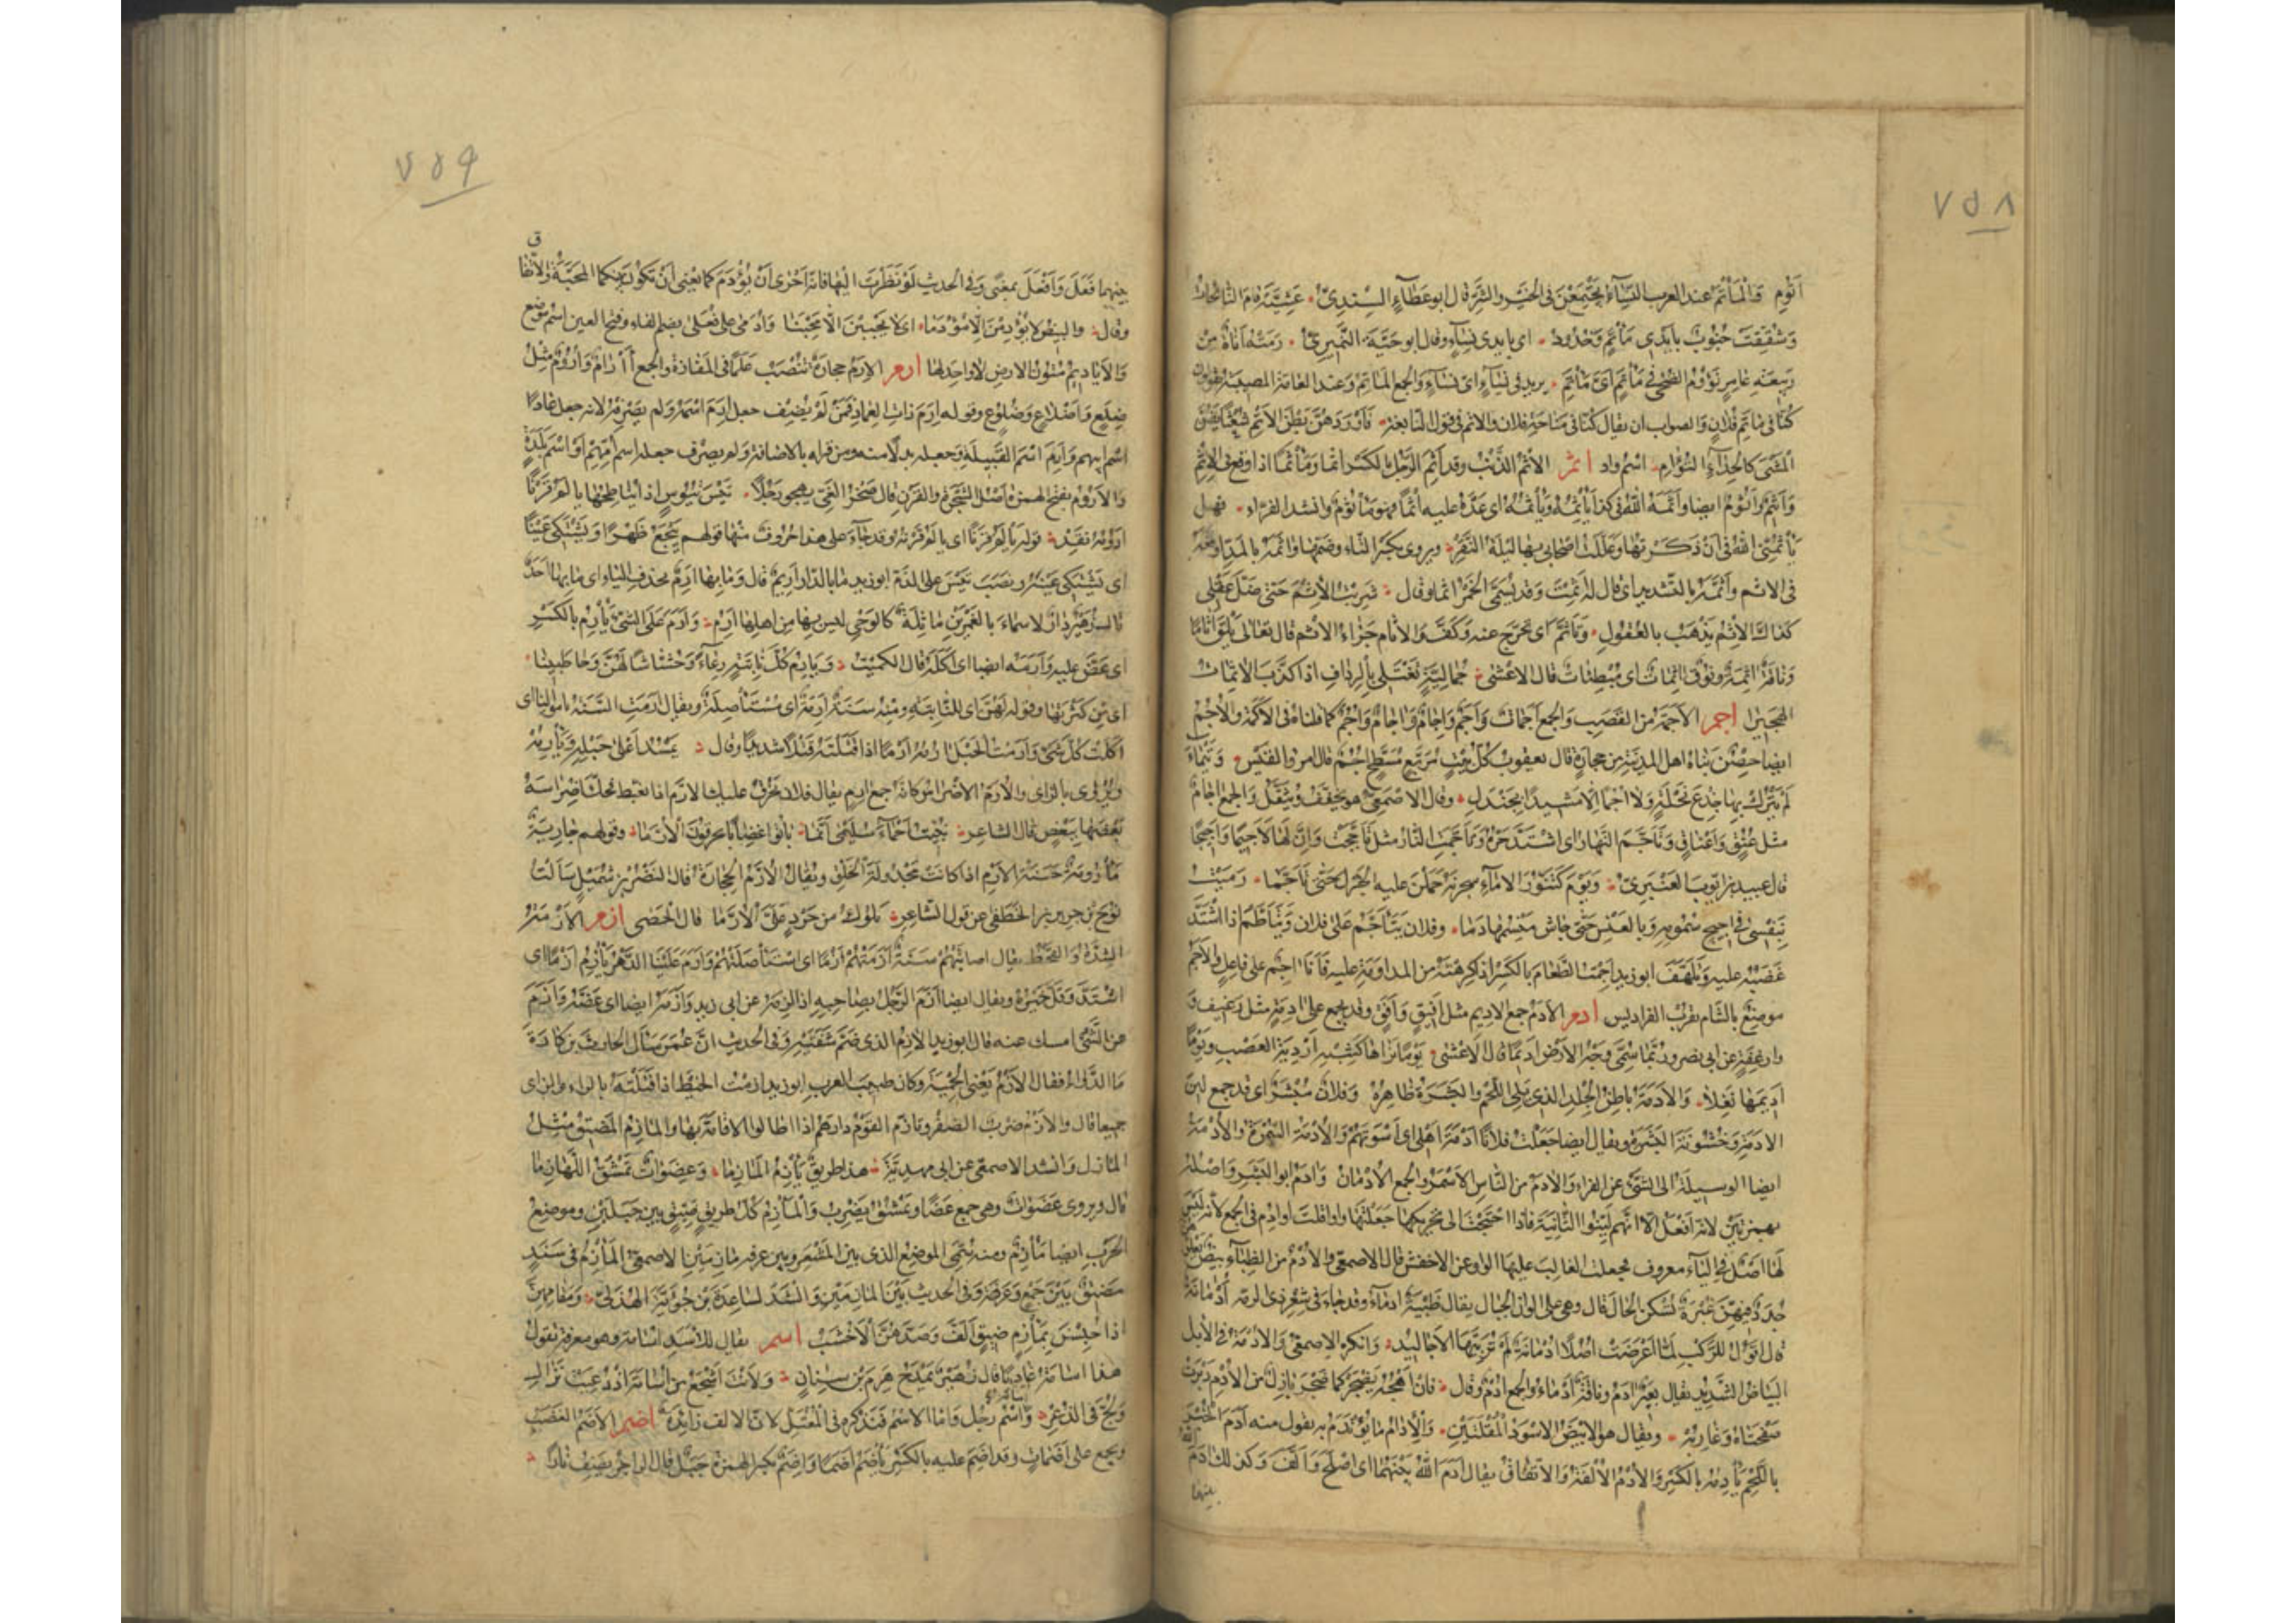 ٧٥٨
اتوم والمأتم عند العرب النساء يجتمعن في الخير والشر قال ابو عطاء السندي عشية قام النائحات
وشققت جيوب بأيدي مأتم وخدود اي بايدي نساء وقال ابو حية النميري رمته اناة من
ربيعة عامر نؤوم الضحى في مأتم اي مأتم يريد في نساء اي نساء والجمع المآتم وعند العامة المصيبة يقولون
كنا في مأتم فلان والصواب ان يقال كنا في مناحة فلان والاتم في قول النابغة فاوردهن بطن الاتم شعثا يصن
المشي كالحداء التؤام اسم واد اثم الاثم الذنب وقد اثم الرجل بالكسر اثما ومأثما اذا وقع في الاثم
وآثم واثوم ايضا واثمه الله في كذا يأثمه ويأثمه اي عده عليه اثما فهو مأثوم وانشد الفراء فهل
يأثمني الله في ان ذكرتها وعللت اصحابي بها ليلة النفر ويروى بكسر الثاء وضمها وآثمه بالمد اوقعه
في الاثم واثمه بالتشديد اي قال له اثمت وقد تسمى الخمر اثما وقال شربت الاثم حتى ضل عقلي
كذاك الاثم يذهب بالعقول وتأثم اي تحرج عنه وكف والاثام جزاء الاثم قال تعالى يلق أثاما
وناقة آثمة ونوق آثمات اي مبطئات قال الاعشى جمالية تغتلي بالرداف اذا كذب الآثمات
الهجيرا اجم الاجمة من القصب والجمع اجمات واجم واجام وآجام واجم كما قلناه في الاكمة والاجم
ايضا حصن بناه اهل المدينة من حجارة قال يعقوب كل بيت مربع مسطح اجم قال امرؤ القيس وتيماء
لم يترك بها جذع نخلة ولا اجما الا مشيدا بجندل وقال الاصمعي هو يخفف ويثقل والجمع آجام
مثل عنق واعناق وتأجم النهار اي اشتد حره وتأجمت النار مثل تأججت وان لها لاجيما واجيجا
قال عبيد بن ايوب العنبري ويوم كتنور الاماء سجرنه حملن عليه الجزل حتى تأجما رميت
بنفسي في اجيج سمومه وبالعنس حتى جاش منسمها دما وفلان يتأجم على فلان ويتأطم اذا اشتد
غضبه عليه وتلهف ابو زيد اجمت الطعام بالكسر اذا كرهته من المداومة عليه فأنا آجم على فاعل والاجم
موضع بالشام بقرب الفراديس ادم الادم جمع الاديم مثل افيق وافق وقد يجمع على آدمة مثل رغيف و
وارغفة عن ابي نصر وربما سمي وجه الارض اديما قال الاعشى يوما تراها كشبه اردية العصب ويوما
اديمها نغلا والادمة باطن الجلد الذي يلي اللحم والبشرة ظاهره وفلان مبشر اي قد جمع لين
الادمة وخشونة البشرة ويقال ايضا جعلت فلانا ادمة اهلي اي اسوتهم والادمة السمرة والادمة
ايضا الوسيلة الى الشيء عن الفراء والآدم من الناس الاسمر والجمع الادمان وآدم ابو البشر واصله
بهمزتين لانه افعل الا انهم لينوا الثانية فاذا احتجت الى تحريكها جعلتها واوا قلت اوادم في الجمع لانه ليس
لها اصل في الياء معروف فجعلت الغالب عليها الواو عن الاخفش قال الاصمعي والادم من الظباء بيض تعلوهن
جدد فيهن غبرة تسكن الجبال قال وهي على الوان الجبال يقال ظبية ادماء وقد جاء في شعر ذي الرمة ادمانة
قال اقول للركب لما اعرضت اصلا ادمانة لم تربيها الاجاليد وانكره الاصمعي والادمة في الابل
البياض الشديد يقال بعير آدم وناقة ادماء والجمع ادم وقال فان اهجه يضجر كما ضجر بازل من الادم دبرت
صفحتاه وغاربه ويقال هو الابيض الاسود المقلتين والادام ما يؤتدم به يقول منه ادم الخبز
باللحم يأدمه بالكسر والادم الالفة والاتفاق يقال ادم الله بينهما اي اصلح والف وكذلك آدم
بينهما
٧٥٩
بينهما فعل وافعل بمعنى وفي الحديث لو نظرت اليها فانه احرى ان يؤدم كما يعني ان تكون بينكما المحبة والاتفاق
وقال والبيض لا يؤدمن الا مؤدما اي لا يحببن الا محببا وأدمى على فعلى بضم الفاء وفتح العين اسم موضع
والاياديم متون الارض لا واحد لها ارم الارم حجارة تنصب علما في المفازة والجمع آرام واروم مثل
ضلع واضلاع وضلوع وقوله ارم ذات العماد فمن لم يضيف جعل ارم اسمه ولم يصرفه لانه جعل عادا
اسم ابيهم وارم اسم القبيلة وجعله بدلا منه ومن قراه بالاضافة ولم يصرف جعله اسم امهم او اسم بلدة
والاروم بفتح الهمزة اصل الشجرة والقرن قال صخر الغي يهجو رجلا تيس تيوس اذا يناطحها يألم قرنا
ارومه نقد قوله يألم قرنا اي يألم قرنه وقد جاء على هذا حروف منها قولهم ييجع ظهرا ويشتكي عينا
اي يشتكي عينه ونصب تيس على الذم ابو زيد ما بالدار اريم قال وما بها ارم بحذف الياء اي ما بها احد
قال زهير دار لاسماء بالغمرين ماثلة كالوحي ليس بها من اهلها ارم وارم على الشيء يأرم بالكسر
اي عض عليه وارمه ايضا اي اكله قال الكميت ويأرم كل نابتة رعاء وحشاشا لهن وحاطبينا
اي من كثرتها وقوله لهن اي للنابتة ومنه سنة آرمة اي مستأصلة ويقال ارمت السنة باموالنا اي
اكلت كل شيء وارمت الحبل آرمه ارما اذا فتلته فتلا شديدا وقال يمسد اعلى حبله ويأرمه
ويروى بالزاي والارم الاضراس كانه جمع آرم يقال فلان يحرق عليك الارم اذا تغيظ فحك اضراسه
بعضها ببعض قال الشاعر نبئت احماء سليمى انما باتوا غضابا يحرقون الارما وقولهم جارية
مأرومة حسنة الارم اذا كانت مجدولة الخلق ويقال الارم الحجارة قال النضر بن شميل سألت
نوح بن جرير بن الخطفى عن قول الشاعر يلوك من حرد علي الارما قال الحصى ازم الازمة
الشدة والقحط يقال اصابتهم سنة ازمتهم ازما اي استأصلتهم وازم علينا الدهر يأزم ازما اي
اشتد وقل خيره ويقال ايضا ازم الرجل بصاحبه اذا لزمه عن ابي زيد وازمه ايضا اي عضه وازم
عن الشيء امسك عنه قال ابو زيد الازم الذي ضم شفتيه وفي الحديث ان عمر سأل الحارث بن كلدة
ما الدواء فقال الازم يعني الحمية وكان طبيب العرب ابو زيد ازمت الخيط اذا فتلته بالراء والزاي
جميعا قال والازم ضرب من الضفر وتأزم القوم دارهم اذا اطالوا الاقامة بها والمأزم المضيق مثل
المأزل وانشد الاصمعي عن ابي مهدية هذا طريق يأزم المآزما وعضوات تمشق اللهازما
قال ويروى عضوات وهي جمع عصا وتمشق تضرب والمأزم كل طريق ضيق بين جبلين وموضع
الحرب ايضا مأزم ومنه سمي الموضع الذي بين المشعر وبين عرفة مأزمين الاصمعي المأزم في سند
مضيق بين جمع وعرفة وفي الحديث بين المأزمين وانشد لساعدة بن جؤية الهذلي ومقامهن
اذا حبسن بمأزم ضيق الف وصدهن الاخشب اسم يقال للاسد اسامة وهو معرفة تقول
هذا اسامة عاديا قال زهير يمدح هرم بن سنان ولانت اشجع من اسامة اذ دعيت نزال
ولج في الذعر واسم رجل واما الاسم فنذكره في المعتل لان الالف زائدة اضم الاضم الغضب
ويجمع على اضمات وقد اضم عليه بالكسر يأضم اضما واضم بكسر الهمزة جبل قال الراجز يصف نارا